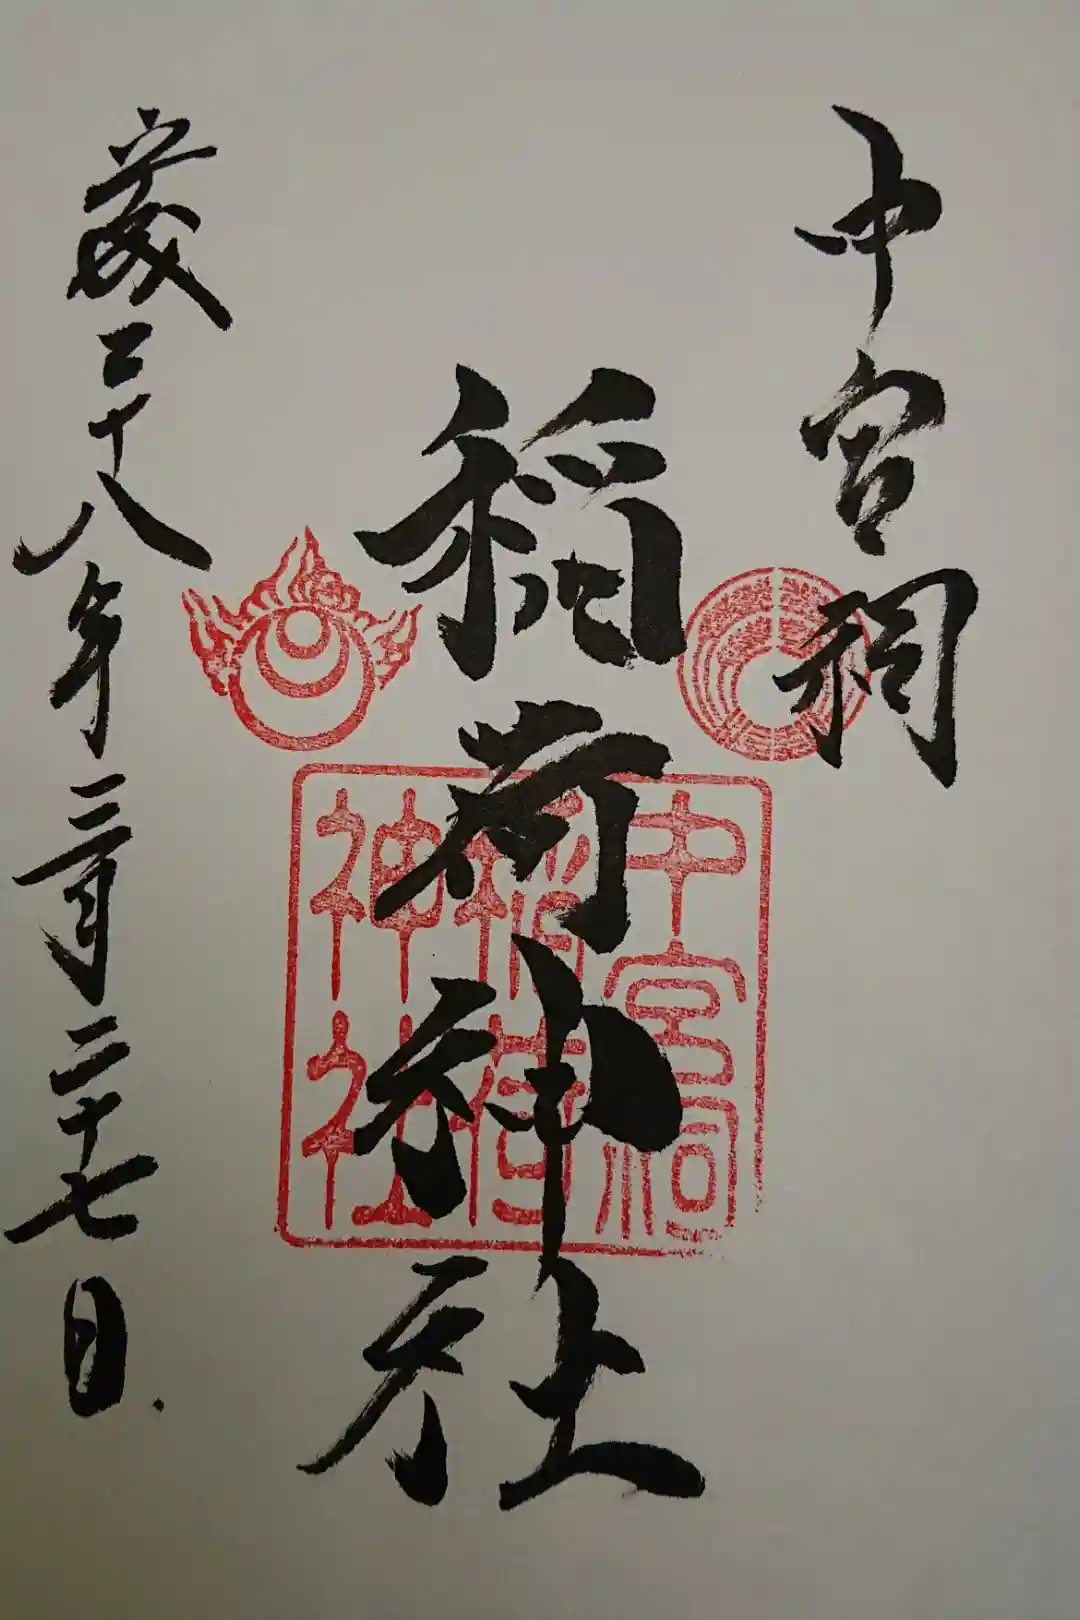 中宮祠
稲荷神社
歳二十八年三月二十七日
中宮祠
稲荷
神社